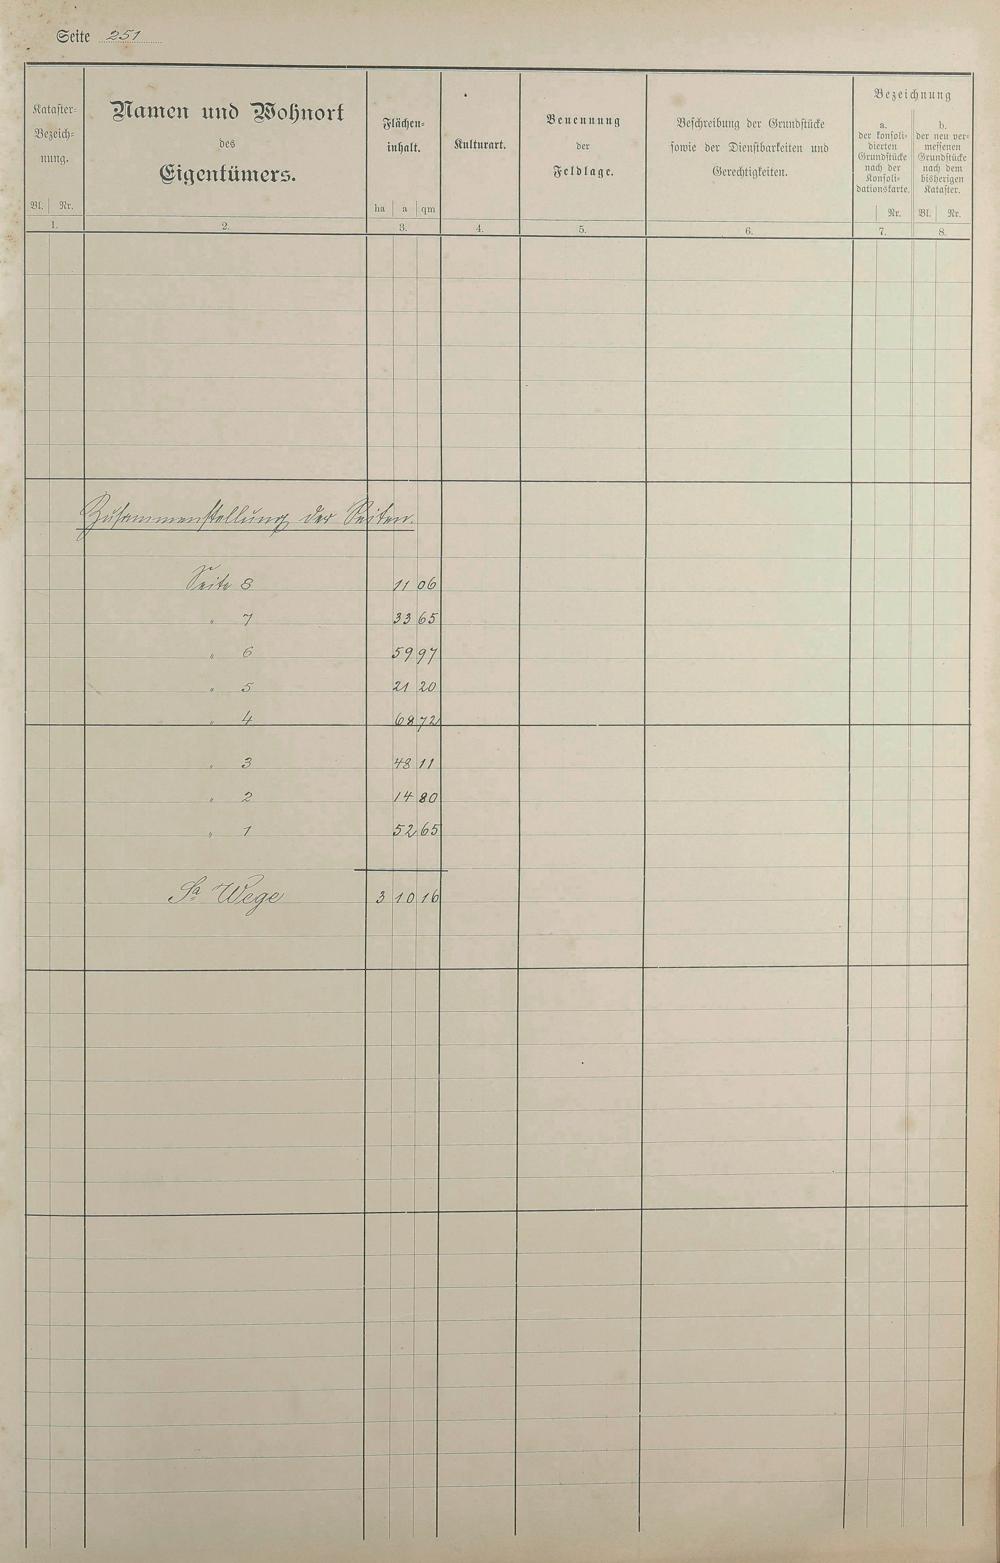 Seite 251
Kataster-
Bezeich-
nung.
Bl. Nr.
1.
Namen und Wohnort
des
Eigentümers.
2.
Flächen-
inhalt.
ha a qm
3.
Kulturart.
4.
Benennung
der
Feldlage.
5.
Beschreibung der Grundstücke
sowie der Dienstbarkeiten und
Gerechtigkeiten.
6.
Bezeichnung
a.
der konsoli-
dierten
Grundstücke
nach der
Konsoli-
dationskarte.
Nr.
7.
b.
der neu ver-
messenen
Grundstücke
nach dem
bisherigen
Kataster.
Bl. Nr.
8.
Zusammenstellung der Seiten.
Seite 8 11 06
" 7 33 65
" 6 59 97
" 5 21 20
" 4 68 72
" 3 48 11
" 2 14 80
" 1 52 65
Sa Wege 3 10 16